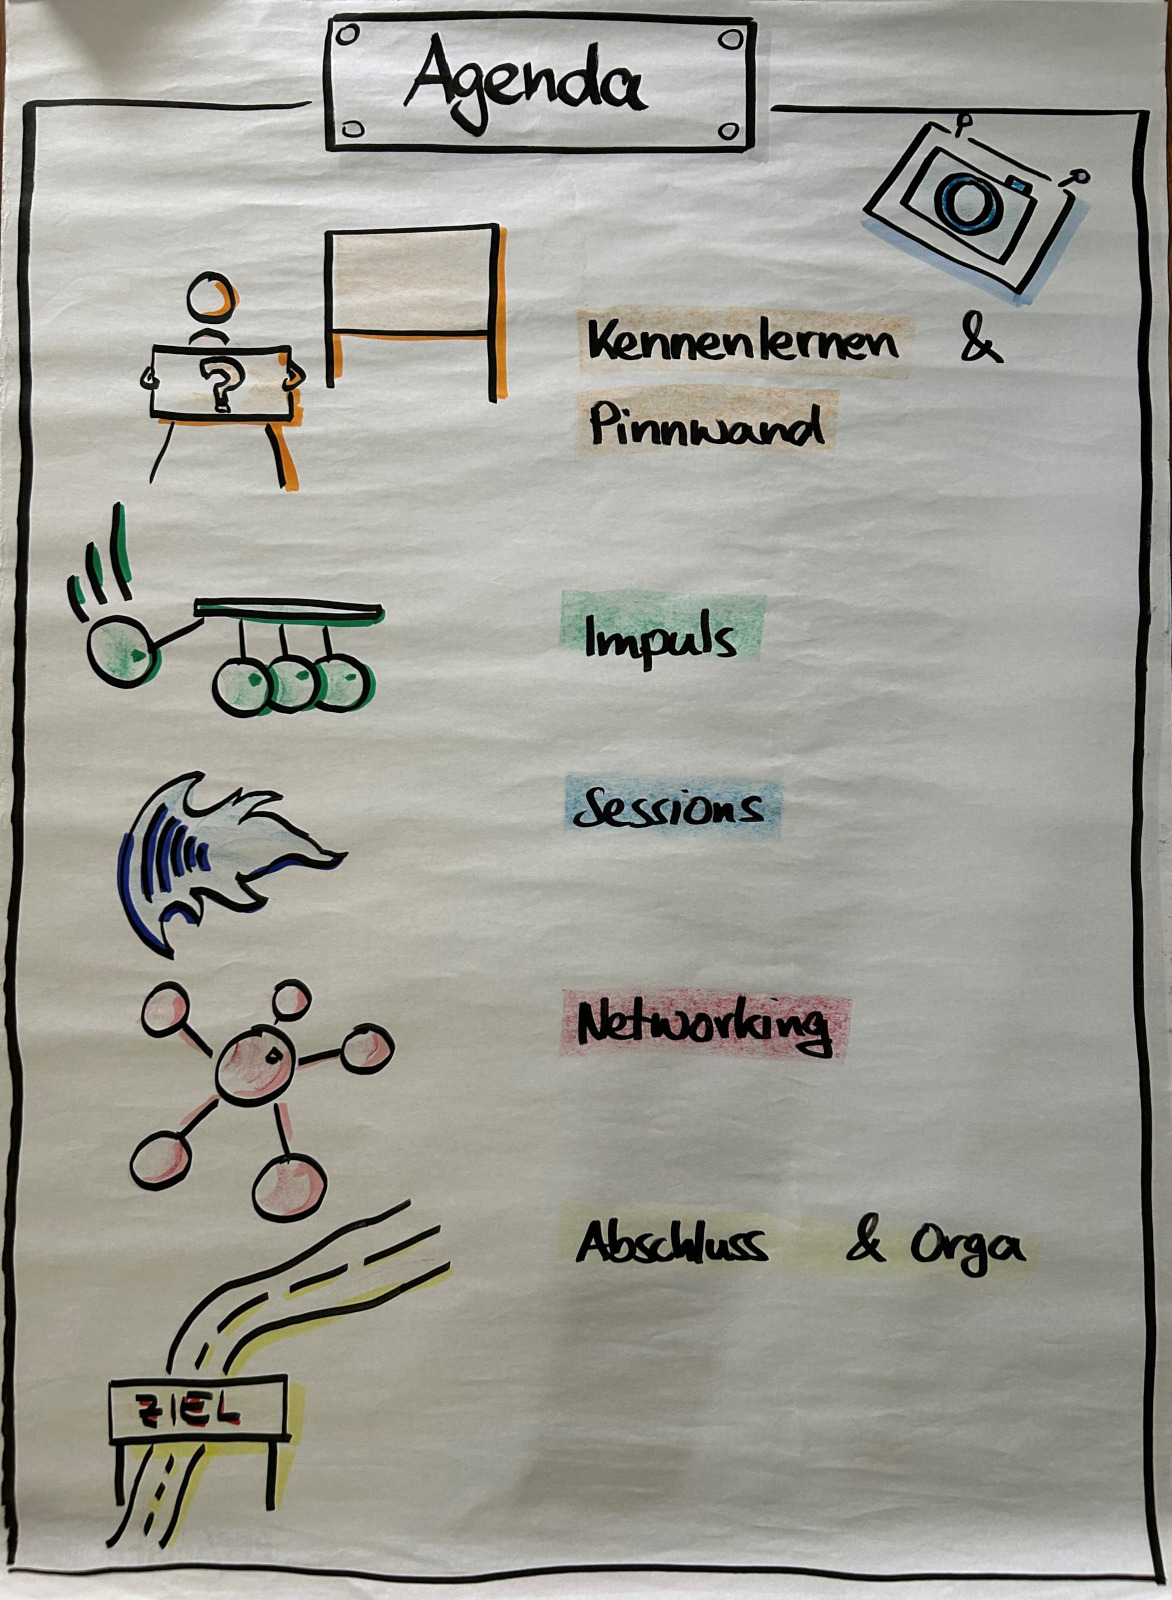 Agenda
?
Kennenlernen &
Pinnwand
Impuls
Sessions
Networking
Abschluss & Orga
ZIEL